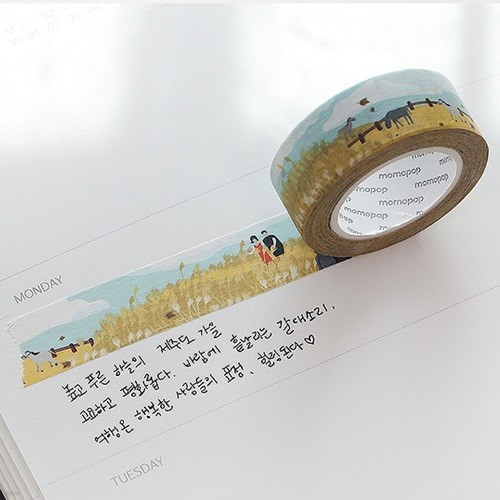 momopop
momopop
momopop
momopop
MONDAY
높고 푸른 하늘의 제주도 가을
고요하고 평화롭다. 바람에 흩날리는 갈대소리.
여행온 행복한 사람들의 표정. 힐링된다♡
TUESDAY